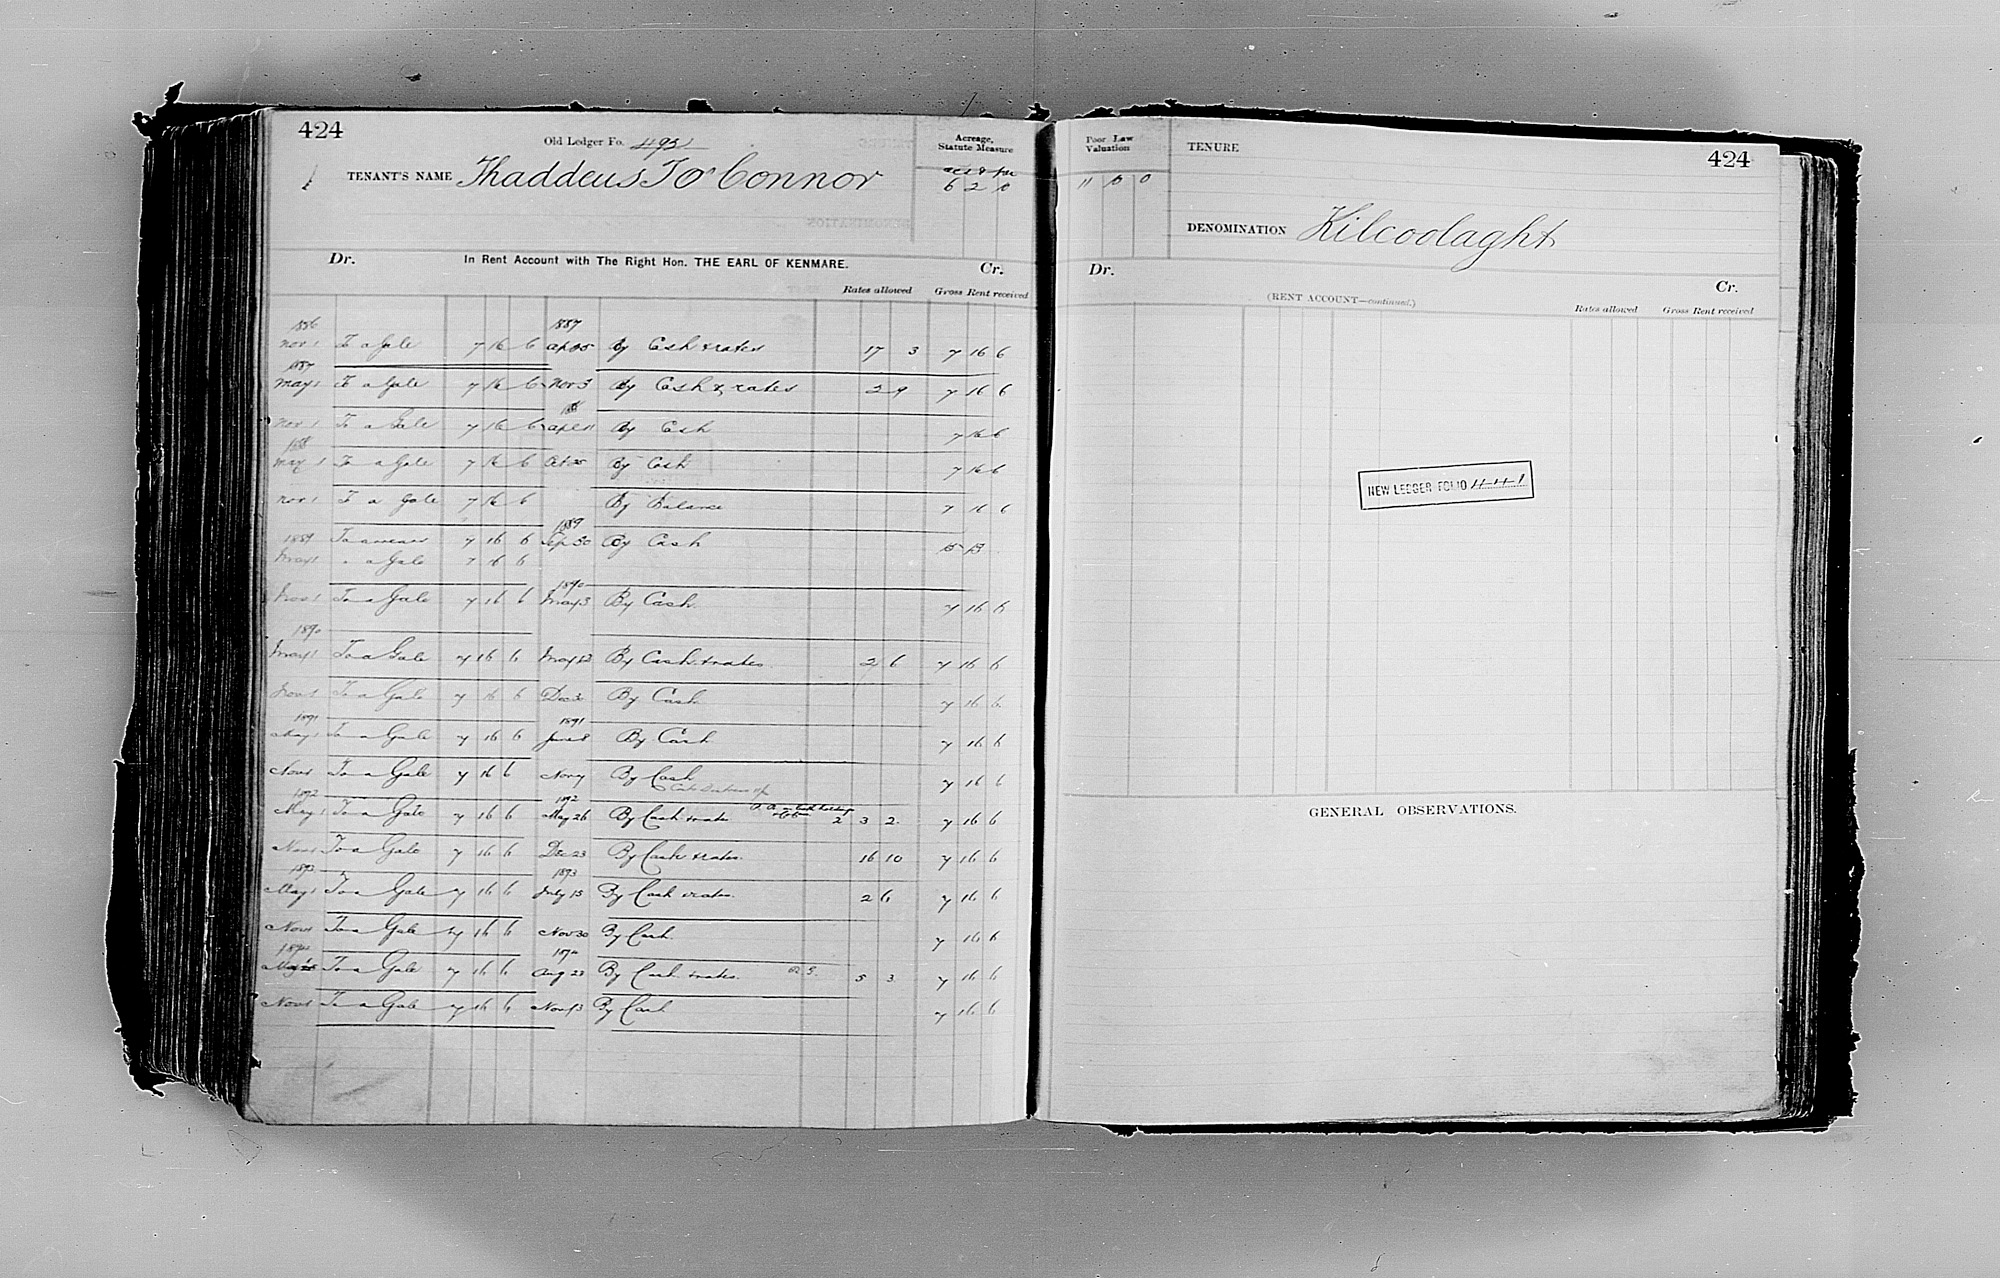 424
Old Ledger Fo. 493
Acreage,
Statute Measure
TENANT'S NAME Thaddeus J O'Connor
6 2 0
Dr. In Rent Account with The Right Hon. THE EARL OF KENMARE. Cr.
Rates allowed Gross Rent received
1886 1887
Nov 1 To a Gale 7 16 6 By Cash & rates 17 3 7 16 6
1887
May 1 To a Gale 7 16 6 Nov 3 By Cash & rates 2 9 7 16 6
188
Nov 1 To a Gale 7 16 6 By Cash 7 16 6
1888
May 1 To a Gale 7 16 6 Oct 20 By Cash 7 16 6
Nov 1 To a Gale 7 16 6 By Balance 7 16 6
1889
1889 To arrears 7 16 6 Sep 30 By Cash 15 13
May 1 " a Gale 7 16 6
1890
Nov 1 To a Gale 7 16 6 May 3 By Cash 7 16 6
1890
May 1 To a Gale 7 16 6 May By Cash & rates 2 6 7 16 6
Nov 1 To a Gale 7 16 6 Dec By Cash 7 16 6
1891 1891
May 1 To a Gale 7 16 6 June 8 By Cash 7 16 6
Nov 1 To a Gale 7 16 6 Nov 7 By Cash 7 16 6
1892 1892
May 1 To a Gale 7 16 6 May 26 By Cash & rates 2 3 2 7 16 6
Nov 1 To a Gale 7 16 6 Dec 23 By Cash & rates 16 10 7 16 6
1893 1893
May 1 To a Gale 7 16 6 July 15 By Cash & rates 2 6 7 16 6
Nov 1 To a Gale 7 16 6 Nov 30 By Cash 7 16 6
1894 1894
May To a Gale 7 16 6 Aug 23 By Cash & rates 5 3 7 16 6
Nov 1 To a Gale 7 16 6 Nov 13 By Cash 7 16 6
Poor Law
Valuation
11 0 0
TENURE
424
DENOMINATION Kilcoolaght
Dr. Cr.
(RENT ACCOUNT—continued.)
Rates allowed Gross Rent received
NEW LEDGER FOLIO 441
GENERAL OBSERVATIONS.